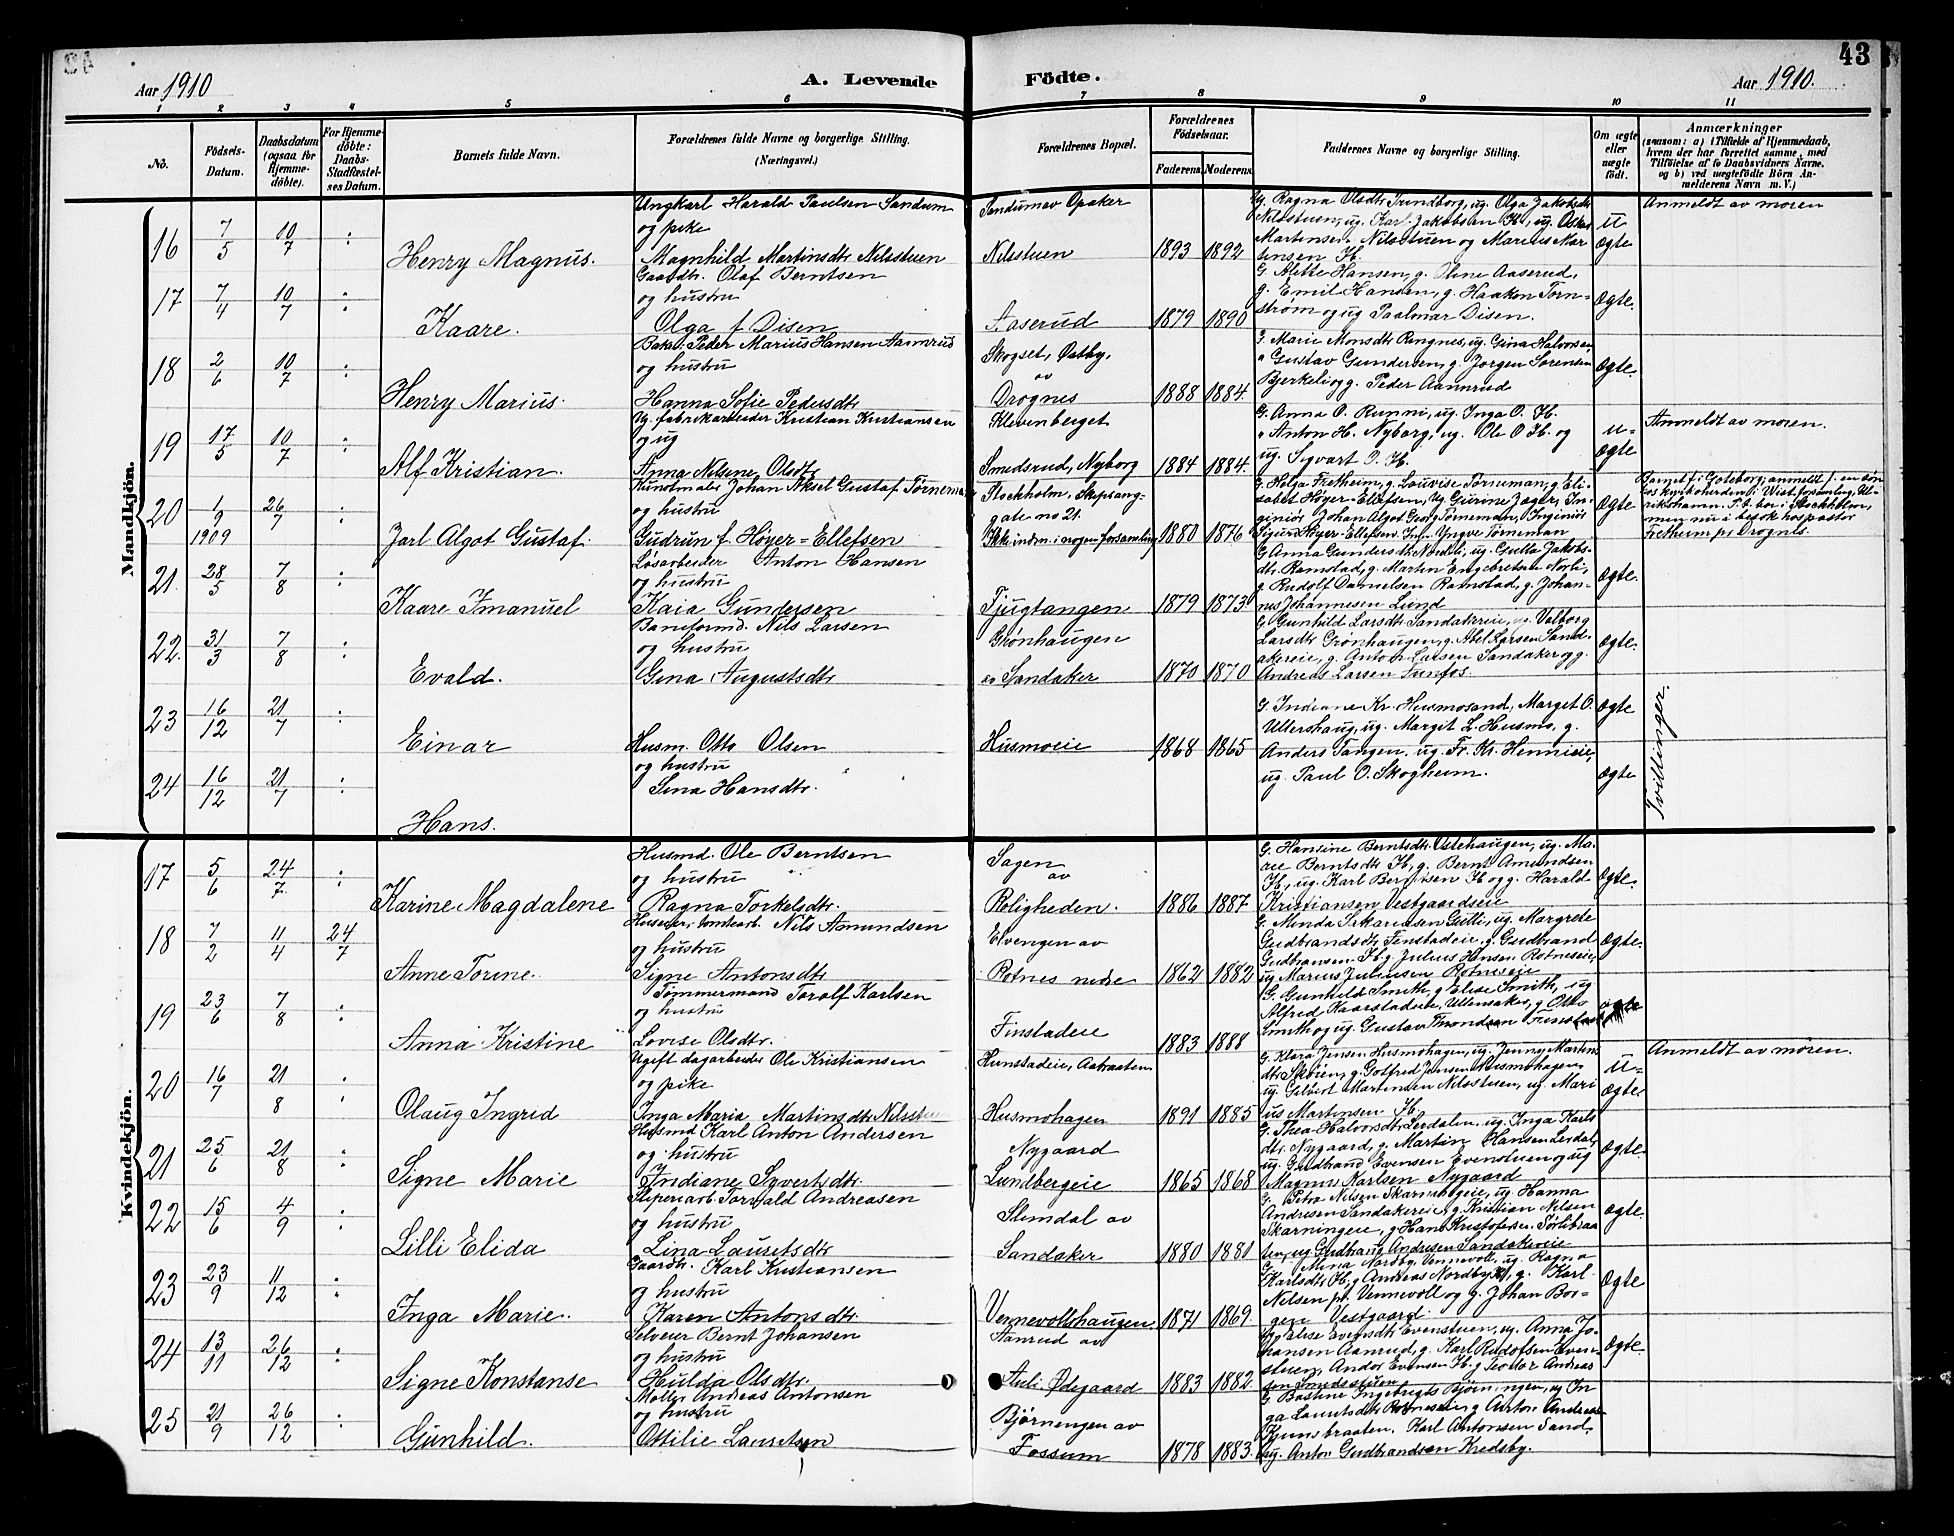 43
Aar 1910
A. Levende Födte.
Aar 1910.
1 2 3 4 5 6 7 8 9 10 11
No.
Födsels-Datum.
Daabsdatum (ogsaa for Hjemmedöbte).
For Hjemmedöbte: Daabs-Stadfæstelses Datum.
Barnets fulde Navn.
Forældrenes fulde Navne og borgerlige Stilling. (Næringsvei.)
Forældrenes Bopæl.
Forældrenes Födselsaar.
Faderens. Moderens.
Faddernes Navne og borgerlige Stilling.
Om ægte eller uægte födt.
Anmærkninger (saasom: a) i Tilfælde af Hjemmedaab, hvem der har forrettet samme, med Tilföielse af to Daabsvidners Navne, og b) ved uægtefödte Börn Anmelderens Navn m. V.)
Mandkjön.
16 7/5 10/7 Henry Magnus.
Ungkarl Harald Paulsen Sandum
og pike
Magnhild Martinsdtr Nilsstuen
Sandumav Opaker
Nilsstuen 1893 1892
Ug. Ragna Olsdtr Trundborg, ug. Olga Jakobsdtr
Nilsstuen, ug. Karl Jakobsen H., ug. Oskar
Martensen Nilsstuen og Marius Mar
tensen H.
u ægte
Anmeldt av moren
17 7/4 10/7 Kaare.
Gaardbr. Olaf Berntsen
og hustru
Olga f. Disen
Aaserud 1879 1890
G. Alette Hansen, g. Oline Aaserud,
g. Emil Hansen, g. Haakon Torn=
strøm og ug Paalmar Disen.
Ægte.
18 2/6 10/7 Henry Marius.
Baker Peder Marius Hansen Aamrud
og hustru
Hanna Sofie Pedersdtr
Skogset, Østby,
av
Drognes 1888 1884
G. Marie Monsdtr Rengnes, ug. Gina Halvorsen,
" Gustav Gundersen, g. Jørgen Sørensen
Bjerkeli og g. Peder Aamrud
Ægte.
19 17/5 10/7 Alf Kristian.
Ug. fabrikarbeider Kristian Kristiansen
og ug
Anna Nilsine Olsdtr
Klevenberget
Smedsrud, Nyborg 1884 1884.
G. Anna O. Runni, ug. Inga O. H.
" Anton H. Nyborg, ug. Ole O H. og
ug. Sigvart O. H.
u= ægte
Anmeldt av moren.
20 1/9 1909 26/7 Jarl Algot Gustaf.
Kunstmaler Johan Aksel Gustaf Törneman
og hustru
Gudrun f. Höyer=Ellefsen
Stockholm, Skepsarg=
gate no 21.
Ikke indm. i nogen forsamling 1880 1876
G. Helga Fretheim, g. Louvise Törneman, g. Eli=
sabet Höyer-Ellefsen, Ug. Gurine Jager, In
geniör Johan Algot Georg Törneman, Ingeniör
Sigurd Höyer-Ellefsen. Ing. Yngve Törneman
Ægte
Barnet f. i Göteborg, anmeldt f. en dön
hos kyrkoherden i Wist forsamling, Ul=
rikshamn. F. t. bor i Stockholm,
men nu i besøk hos pastor
Fretheim pr Drognes.
21. 28/5 7/8 Kaare Imanuel
Løsarbeider Anton Hansen
og hustru
Kaia Gundersen
Fjugtangen 1879 1873
G. Anna Gundersdtr Nordli, ug. Gutta Jakobs=
dtr. Ramstad, g. Martin Engebretsen Norli,
g. Rudolf Danielsen Ramstad, g. Johan=
nes Johannesen Lund
Ægte.
22. 31/3 7/8 Evald.
Baneformd. Nils Larsen
og hustru
Gina Augustsdtr
Grønhaugen
av Sandaker 1870 1870
G. Gunhild Larsdtr. Sandakereie, ug. Valborg
Larsdtr Grønhaugen, g. Abel Larsen Sand=
akereie, g. Anton Larsen Sandaker og g.
Andreas Larsen Funfos.
Ægte.
23 16/12 21/7 Einar
Husm. Otto Olsen
og hustru
Sina Hansdtr.
Husmoeie 1868 1865
G. Indiane Kr. Husmosand, Margit O.
Ullershaug, ug. Margit L. Husmo, g.
Anders Tangen, ug. Fr. Kr. Hennieie,
ug. Paul O. Skogheim.
Ægte
Tvillinger.
24 16/12 21/7 Hans.
ægte
Kvindekjön.
17 5/6 24/7. Karine Magdalene
Husmd. Ole Berntsen
og hustru
Ragna Torkelsdtr.
Sagen
av
Roligheden. 1886 1887
G. Hansine Berntsdtr. Østehaugen, ug. Ma=
rie Berntsdtr H, g. Bernt Amundsen
H., ug. Karl Berntsen H og g. Harald
Kristiansen Vestgaardseie
Ægte.
18 7/2 11/4 24/7 Anne Torine.
Huseier, tomtearb. Nils Amundsen
og hustru
Signe Antonsdtr
Elvengen av
Rotnes nedre 1862 1882
G. Minda Sakariasen Gutti, ug. Margrete
Gudbrandsdtr Finstadeie, g. Gudbrand
Gudbransen H. g. Julius Hansen Rotneseie,
ug Marius Juliussen Rotneseie
Ægte.
19 23/6 7/8 Anna Kristine
Tømmermand Toralf Karlsen
og hustru
Lovise Olsdtr.
Finstadeie 1883 1888
G. Gunhild Smith, g Elise Smith, ug
Alfred Kaarstadeie, Ullensaker, g. Otto
Smith og ug. Gustav Thomdsen Finstad
ægte
20 16/7 21/8 Olaug Ingrid
Ugift dagarbeider Ole Kristiansen
og pike
Inga Marie Martinsdtr Nilsstuen
Hunstadeie, Aatraaten
Husmohagen 1891 1885
G. Klara Jensen Husmohagen, ug. Jenny Martins
dtr Skøien, g. Gotfred Jensen Husmohagen,
ug. Gilbert Martensen Nilsstuen, ug. Mari
us Martensen H.
u= ægte
Anmeldt av moren.
21 25/6 21/8 Signe Marie
Husmd Karl Anton Andersen
og hustru
Indiane Syvertsdtr.
Nygaard
Lundbergeie 1865 1868
G. Thea Halvorsdtr Lerdalen, ug. Inga Karls
dtr. Nygaard, g. Martin Hansen Lerdal,
ug. Gudbrand Evensen Evenstuen og ug
Magnus Karlsen Nygaard
Ægte.
22 15/6 4/9 Lilli Elida
Sliperiarb. Torvald Andreasen
og hustru
Lina Lauritsdtr
Slemdal av
Sandaker 1880 1881
G. Petra Nilsen Skarningeie, ug. Hanna
Andresen Sandakereie, g. Kristian Nilsen
Skarningeie, g Hans Kristofersen Sørlibraa
ten, ug. Gudbrand Andresen Sandakereie
Ægte.
23 23/9 11/12 Inga Marie.
Gaardbr. Karl Kristiansen
og hustru
Karen Antonsdtr
Vennevollshaugen 1871 1869.
G. Mina Nordby, Vennevoll, ug Ragna
Karlsdtr H, g Andreas Nordby, g. Karl
Nilsen pr. Vennevoll og g. Johan Bor=
gen Vestgaard.
Ægte
24 13/11 26/12 Signe Konstanse
Selveier Bernt Johansen
og hustru
Hulda Olsdtr.
Aamrud av
Auli Ødegaard 1883 1882
Ug Elise Evensdtr Evenstuen, ug. Anna Jo=
hansen Aamrud, g. Karl Rudolfsen Even=
stuen, Andor Evensen H. g Teodor Andreas
sen Smedsstuen
Ægte.
25 21/9 26/12 Gunhild.
Møller Andreas Antonsen
og hustru
Ottilie Lauritsen
Bjørnengen av
Fossum 1878 1883.
G Bastine Ingebrigts Bjørnengen, ug In
ga Lauritsdtr Rotneseie, g Anton Andreas
Kjunsbraaten. Karl Antonsen Sand,
ug. Anton Gudbrandsen Kredsby.